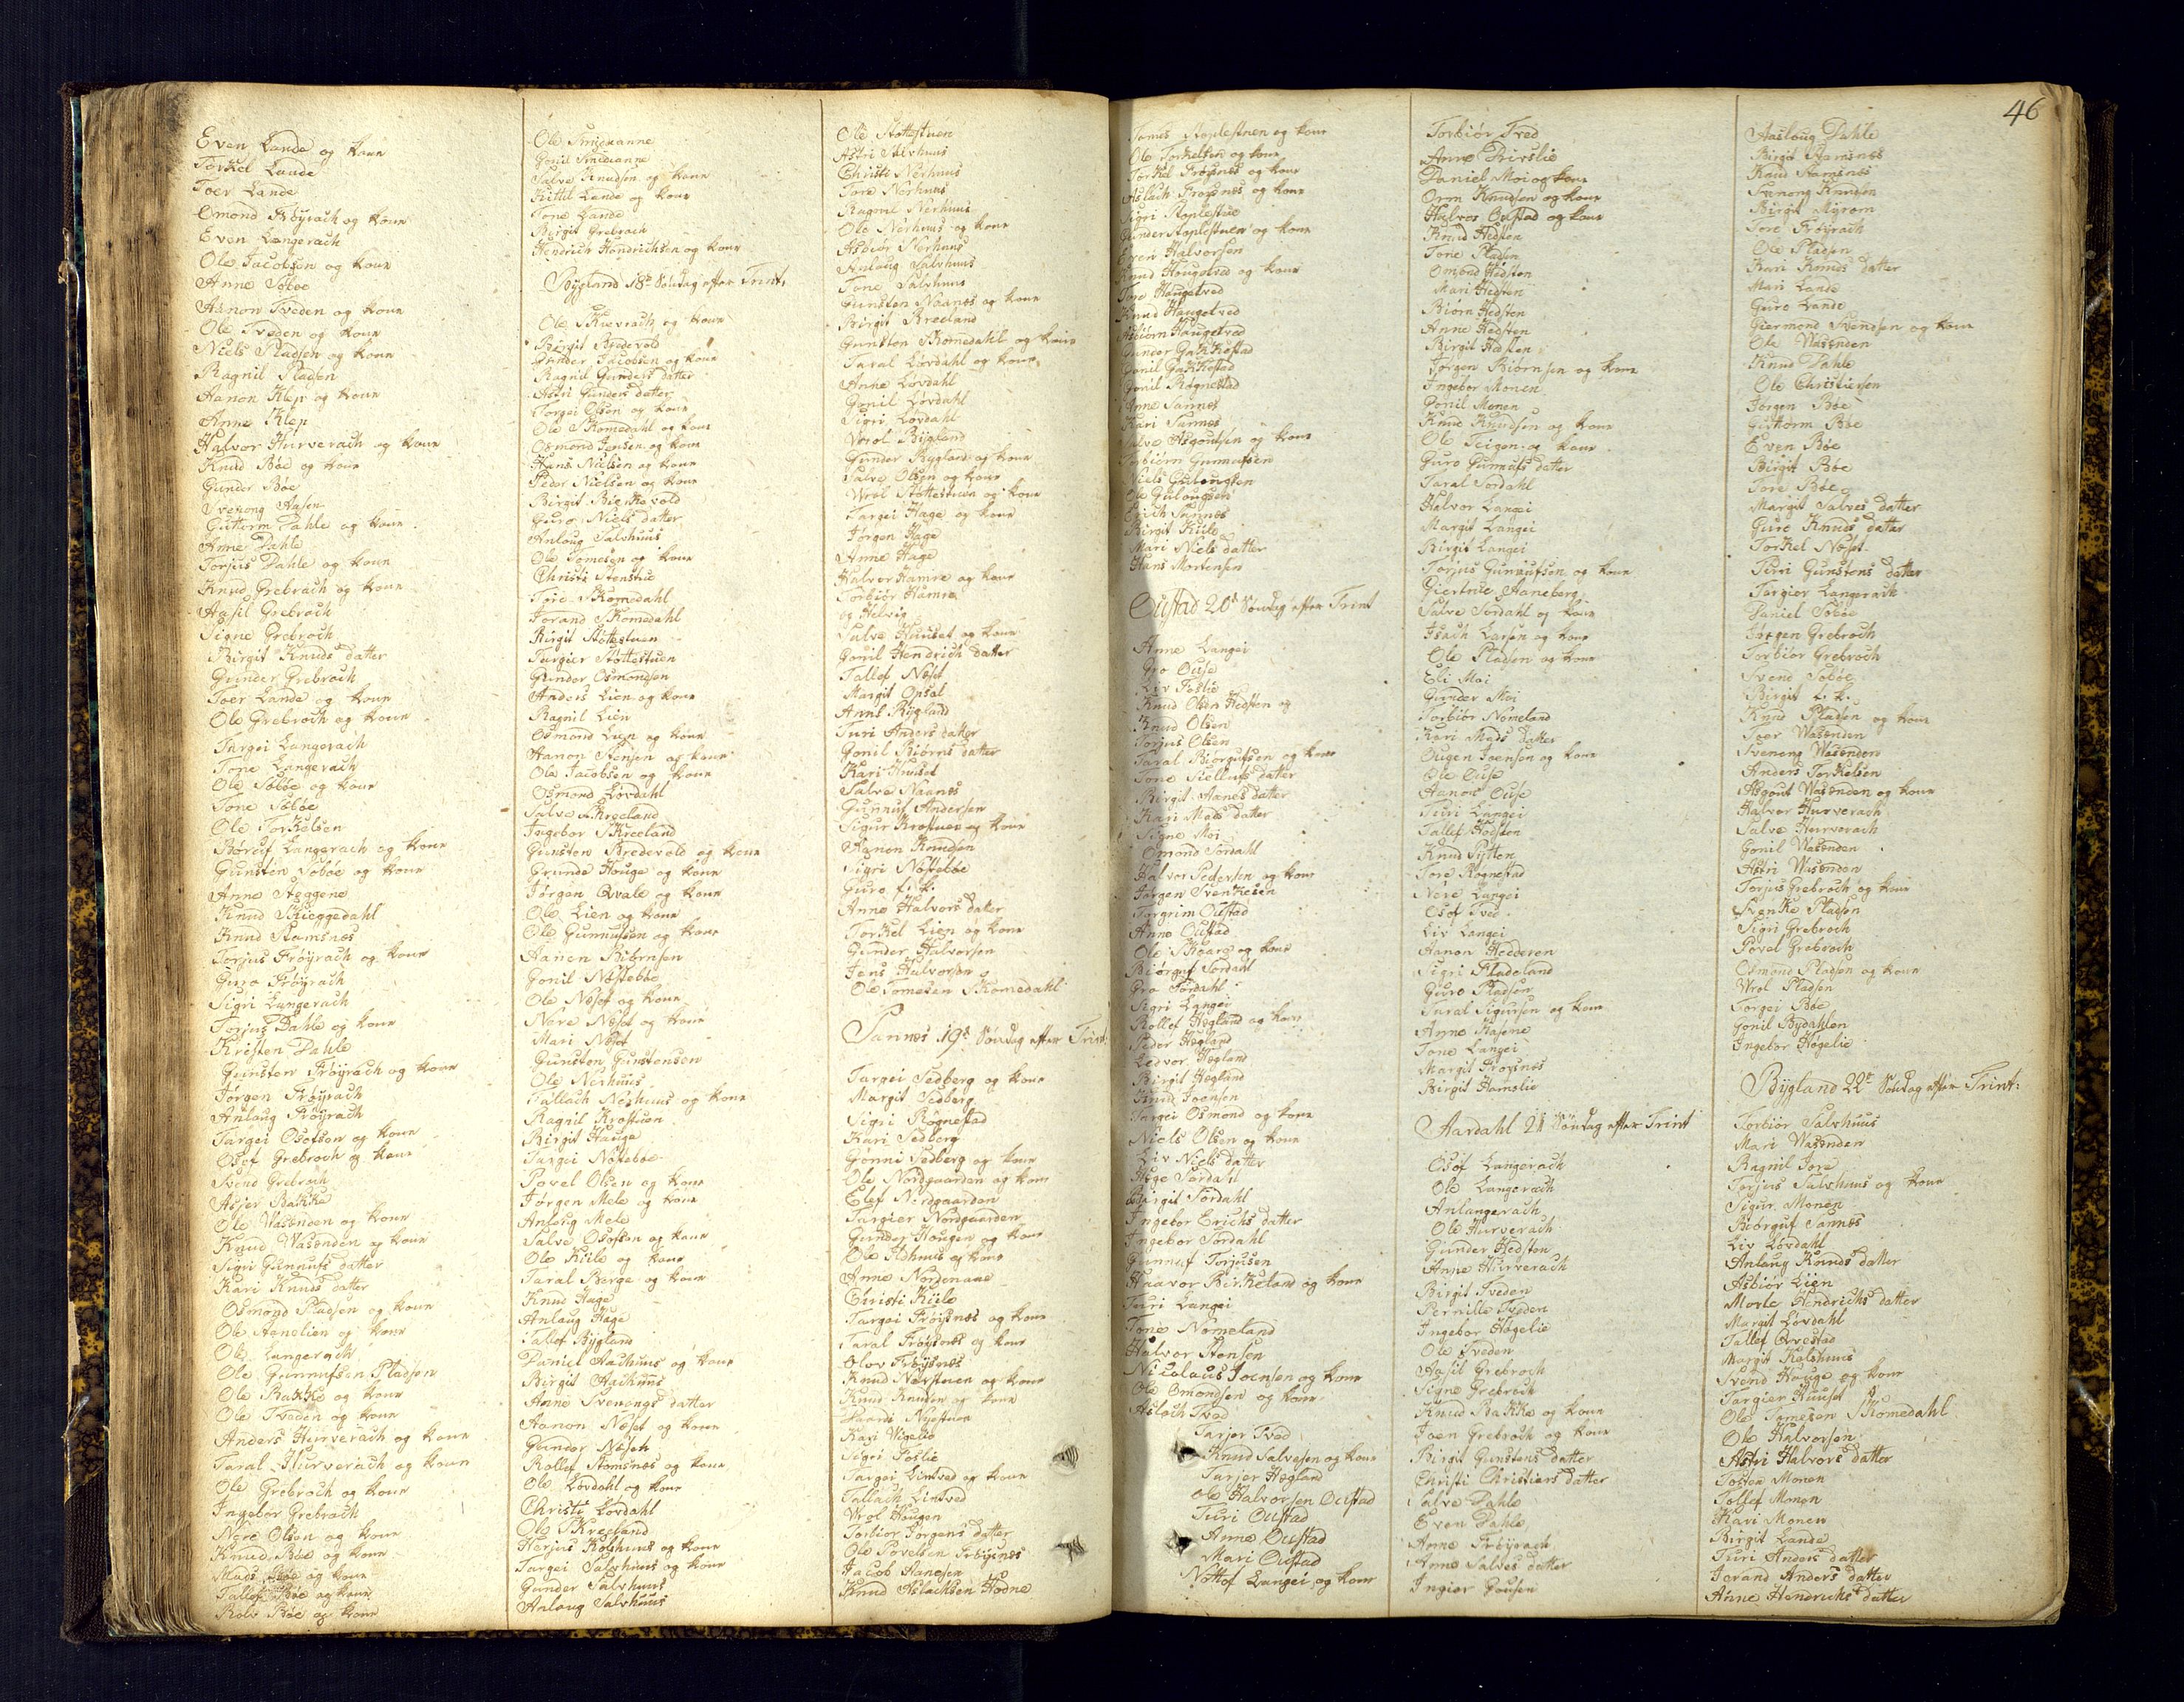 Even Lande og kone
Torkel Lande
Toer Lande
Omond Frøyrach og kone
Even Langerach
Ole Jacobsen og kone
Anne Søbøe
Aanon Tveden og kone
Ole Tveden og kone
Niels Pladsen og kone
Ragnil Pladsen
Aanon Klep og kone
Anne Klep
Halvor Hurverach og kone
Knud Bøe og kone
Gunder Bøe
Svenong Aasen
Guttorm Dahle og kone
Anne Dahle
Torjus Dahle og kone
Knud Grebroch og kone
Aasil Grebroch
Signe Grebroch
Birgit Knuds datter
Gunder Grebroch
Toer Lande og kone
Ole Grebroch og kone
Targei Langerach
Tone Langerach
Ole Søbøe og kone
Tone Søbøe
Ole Torkelsen
Børuf Langerach og kone
Gunsten Søbøe og kone
Anne Steggene
Knud Skieggedahl
Knud Stamsnes
Torjus Frøyrach og kone
Guro Frøyrach
Sigri Langerach
Torjus Dahle og kone
Kristen Dahle
Gunsten Frøyrach og kone
Jørgen Frøyrach
Anlaug Frøyrach
Targei Osofson og kone
Osof Grebroch og kone
Svend Grebroch
Asjer Bakke
Ole Wasenden og kone
Knud Wasenden og kone
Sigri Gunnufs datter
Kari Knuds datter
Osmond Pladsen og kone
Ole Aenolien og kone
Ole Langerach
Ole Gunnufsen Pladsen
Ole Bakke og kone
Ole Tveden og kone
Anders Hurverach og kone
Taral Hurverach og kone
Ole Grebroch og kone
Ingebor Grebroch
Nere Olsen og kone
Knud Bøe og kone
Mads Bøe og kone
Tallef Bøe og kone
Rolv Bøe og kone
Ole Smiexanne
Gonil Smiexanne
Salve Knudsen og kone
Kittil Lande og kone
Tone Lande
Birgit Grebroch
Hendrich Hendrichsen og kone
Bygland 18de Søndag efter Trint:
Ole Skrevrach og kone
Birgit Bredevold
Gunder Jacobsen og kone
Ragnil Gunders datter
Astri Gunders datter
Torgei Olsen og kone
Ole Skomedahl og kone
Osmond Jensen og kone
Hans Nielsen og kone
Peder Nielsen og kone
Birgit Birkevold
Guro Niels datter
Anlaug Salvhuus
Ole Tomesen og kone
Christi Stenstue
Tore Skomedahl
Jorand Skomedahl
Birgit Støttestuen
Targier Støttestuen
Gunder Osmondsen
Anders Lien og kone
Ragnil Lien
Osmond Lien og kone
Aanon Stensen og kone
Ole Jacobsen og kone
Osmond Løvdahl
Salve Skreeland
Ingebor Skreeland
Gunsten Bredevold og kone
Grunde Houge og kone
Jørgen Qvale og kone
Ole Lien og kone
Ole Gunnufsen og kone
Aanen Biørnsen
Gonil Næstebøe
Ole Næset og kone
Nere Næset og kone
Mari Næset
Gunsten Gunstensen
Ole Nerhuus
Tallach Nerhuus og kone
Ragnil Krostuen
Birgit Hauge
Targei Nøstebøe
Povel Olsen og kone
Jørgen Mele og kone
Anlaug Mele
Salve Osofsen og kone
Ole Kiile og kone
Taral Berge og kone
Knud Hage
Anlaug Hage
Tallef Bygland
Daniel Aachuus og kone
Birgit Aachuus
Anne Svenongs datter
Aanon Næset og kone
Gunder Næset
Rollef Stomsnes og kone
Ole Løvdahl og kone
Christi Løvdahl
Ole Skreeland
Herjus Kolshuus og kone
Targei Salvhuus og kone
Gunder Salvhuus
Anlaug Salvhuus
Ole Støttestuen
Astri Salvhuus
Christi Nerhuus
Tore Nerhuus
Ragnil Nerhuus
Ole Nerhuus og kone
Asbiør Nerhuus
Anlaug Salvhuus
Tone Salvhuus
Gunsten Naanes og kone
Birgit Breeland
Gunsten Skomedahl og kone
Taral Løvdahl og kone
Anne Løvdahl
Gonil Løvdahl
Sigri Løvdahl
Wrol Bygland
Gunder Bygland og kone
Salve Olsen og kone
Wrol Støttestuen og kone
Targei Hage og kone
Jørgen Hage
Anne Hage
Halvor Hamre og kone
Torbiør Hamre
og Helvig
Salve Huuset og kone
Gonil Hendrich datter
Tallef Næset
Margit Opsal
Anne Bygland
Turi Anders datter
Gonil Biørns datter
Kari Huuset
Salve Naanes
Gunnuf Andersen
Sigur Krostuen og kone
Aanon Knudsen
Sigri Nøstebøe
Guro f. f.
Anne Halvors datter
Torkel Lien og kone
Gunder Halvorsen
Jens Halvorsen
Ole Tomesen Skomedahl
Sannes 19de Søndag efter Trint:
Targei Sedberg og kone
Margit Sedberg
Sigri Rognestad
Kari Sedberg
Gønni Sedberg og kone
Ole Nordgaarden og kone
Elef Nordgaarden
Targier Nordgaarden
Gunder Hougen og kone
Ole Ishuus og kone
Anne Nordenaae
Christi Kiile
Targei Frøysnes og kone
Taral Frøysnes og kone
Olov Frøysnes
Knud Nerstuen og kone
Knud Knudsen og kone
Haardi Nystuen
Kari Wigelie
Sigri Foslie
Targei Lintved og kone
Tallach Lintved
Wrol Hougen
Torbiør Jorgens datter
Ole Povelsen Frøysnes
Jacob Aanesen
Knud Aslachsen Hodne
46
Tomes Stoplestuen og kone
Ole Torkelsen og kone
Torkel Frøysnes og kone
Aslach Frøysnes og kone
Sigri Stoplestue
Gunder Stoplestuen og kone
Even Halvorsen
Knud Hougetved og kone
Tore Haugetved
Knud Haugetved
Asbiørn Haugetved
Gunder Gakkestad
Gonil Gakkestad
Gonil Rognestad
Anne Sannes
Kari Sannes
Salve Asgoutsen og kone
Torbiørn Gunnufsen
Niels Gulougsen
Ole Gulougsen
Erich Sannes
Birgit Kiile
Mari Niels datter
Hans Mortensen
Oustad 20de Søndag efter Trint
Anne Langei
Gro Ouse
Liv Foslie
Knud Olsen Hedsten og
Knud Olsen
Torjus Olsen
Taral Biørgufsen og kone
Tone Siellufs datter
Birgit Aanes datter
Kari Mads datter
Signe Moi
Omond Sordahl
Halvor Pedersen og kone
Jørgen Svenkesen
Torgrim Oustad
Anne Oustad
Ole Skaare og kone
Biørguf Sordahl
Gro Sordahl
Sigri Langei
Rollef Hegland og kone
Peder Hegland
Ledvor Hegland
Birgit Hegland
Knud Joensen
Targei Osmond og kone
Niels Olsen og kone
Liv Niels datter
Hoge Sordahl
Birgit Sordahl
Ingebor Erichs datter
Ingebor Sordahl
Gunnuf Torjusen
Haavor Birkeland og kone
Turi Langei
Tone Nomeland
Halvor Stensen
Nicolaus Joensen og kone
Ole Omondsen og kone
Aslach Tved
Tarjer Tved
Knud Salvesen og kone
Tarjer Hegland
Ole Halvorsen Oustad
Turi Oustad
Anne Oustad
Mari Oustad
Nottof Langei og kone
Torbiør Tved
Anne Trivslie
Daniel Moi og kone
Orm Knudsen og kone
Halvor Oustad og kone
Knud Hedsten
Tone Pladsen
Omond Hedsten
Mari Hedsten
Biørn Hedsten
Anne Hedsten
Birgit Hedsten
Jørgen Biørnsen og kone
Ingebor Monen
Gonil Monen
Knud Knudsen og kone
Ole Teigen og kone
Guro Gunnufs datter
Taral Sordahl
Halvor Langei
Margit Langei
Birgit Langei
Torjus Gunnufsen og kone
Giertrue Aaneberg
Salve Sordahl og kone
Isach Larsen og kone
Ole Pladsen og kone
Eli Moi
Gunder Moi
Torbiør Nomeland
Kari Mads datter
Ougen Joensen og kone
Ole Ouse
Aanon Ouse
Turi Langei
Tallef Hedsten
Knud Pytten
Tore Rognestad
Nere Langei
Osof Tved
Liv Langei
Aanon Hedderen
Sigri Fladeland
Guro Pladsen
Taral Sigursen og kone
Anne Hasene
Tone Langei
Margit Frøysnes
Birgit Hamslie
Aardahl 21 Søndag efter Trint
Osof Langerach
Ole Langerach
An Langerach
Ole Hurverach
Gunder Hedsten
Anne Hurverach
Birgit Tveden
Pernille Tveden
Ingebor Høgelie
Ole Tveden
Aasil Grebroch
Signe Grebroch
Knud Bakke og kone
Joen Grebroch og kone
Birgit Gunstens datter
Christi Christiens datter
Salve Dahle
Even Dahle
Anne Frøyrach
Anne Salves datter
Ingier Housen
Aaslaug Dahle
Birgit Stamsnes
Knud Stamsnes
Svenong Knudsen
Birgit Myrom
Tore Frøyrach
Ole Pladsen
Kari Knuds datter
Mari Lande
Guro Lande
Giermond Svendsen og kone
Ole Wasenden
Knud Dahle
Ole Christiersen
Jørgen Bøe
Guttorm Bøe
Even Bøe
Birgit Bøe
Tore Bøe
Margit Salves datter
Guro Knuds datter
Torkel Næset
Turi Gunstens datter
Targier Langerach
Daniel Søbøe
Jørgen Grebroch
Torbiør Grebroch
Svend Søbøe
Birgit f. f.
Knud Pladsen og kone
Toer Wasenden
Svenong Wasenden
Anders Torkelsen
Asgout Wasenden og kone
Halvor Hurverach
Salve Hurverach
Gonil Wasenden
Astri Wasenden
Torjus Grebroch og kone
Svenke Pladsen
Sigri Grebroch
Povel Grebroch
Osmond Pladsen og kone
Wrol Pladsen
Torgei Bøe
Gonil Bydahlen
Ingebor Høgelie
Bygland 22de Søndag efter Trint:
Torbiør Salvhuus
Mari Wasenden
Ragnil Jore
Torjus Salvhuus og kone
Sigur Monen
Biørguf Sannes
Liv Løvdahl
Anlaug Knuds datter
Asbiør Lien
Morte Hendrichs datter
Margit Løvdahl
Tallef Qvestad
Margit Kolshuus
Svend Houge og kone
Targier Huuset
Ole Tomesen Skomedahl
Ole Halvorsen
Astri Halvors datter
Tosten Monen
Tollef Monen
Kari Monen
Birgit Lande
Turi Anders datter
Jorand Anders datter
Anne Hendrichs datter